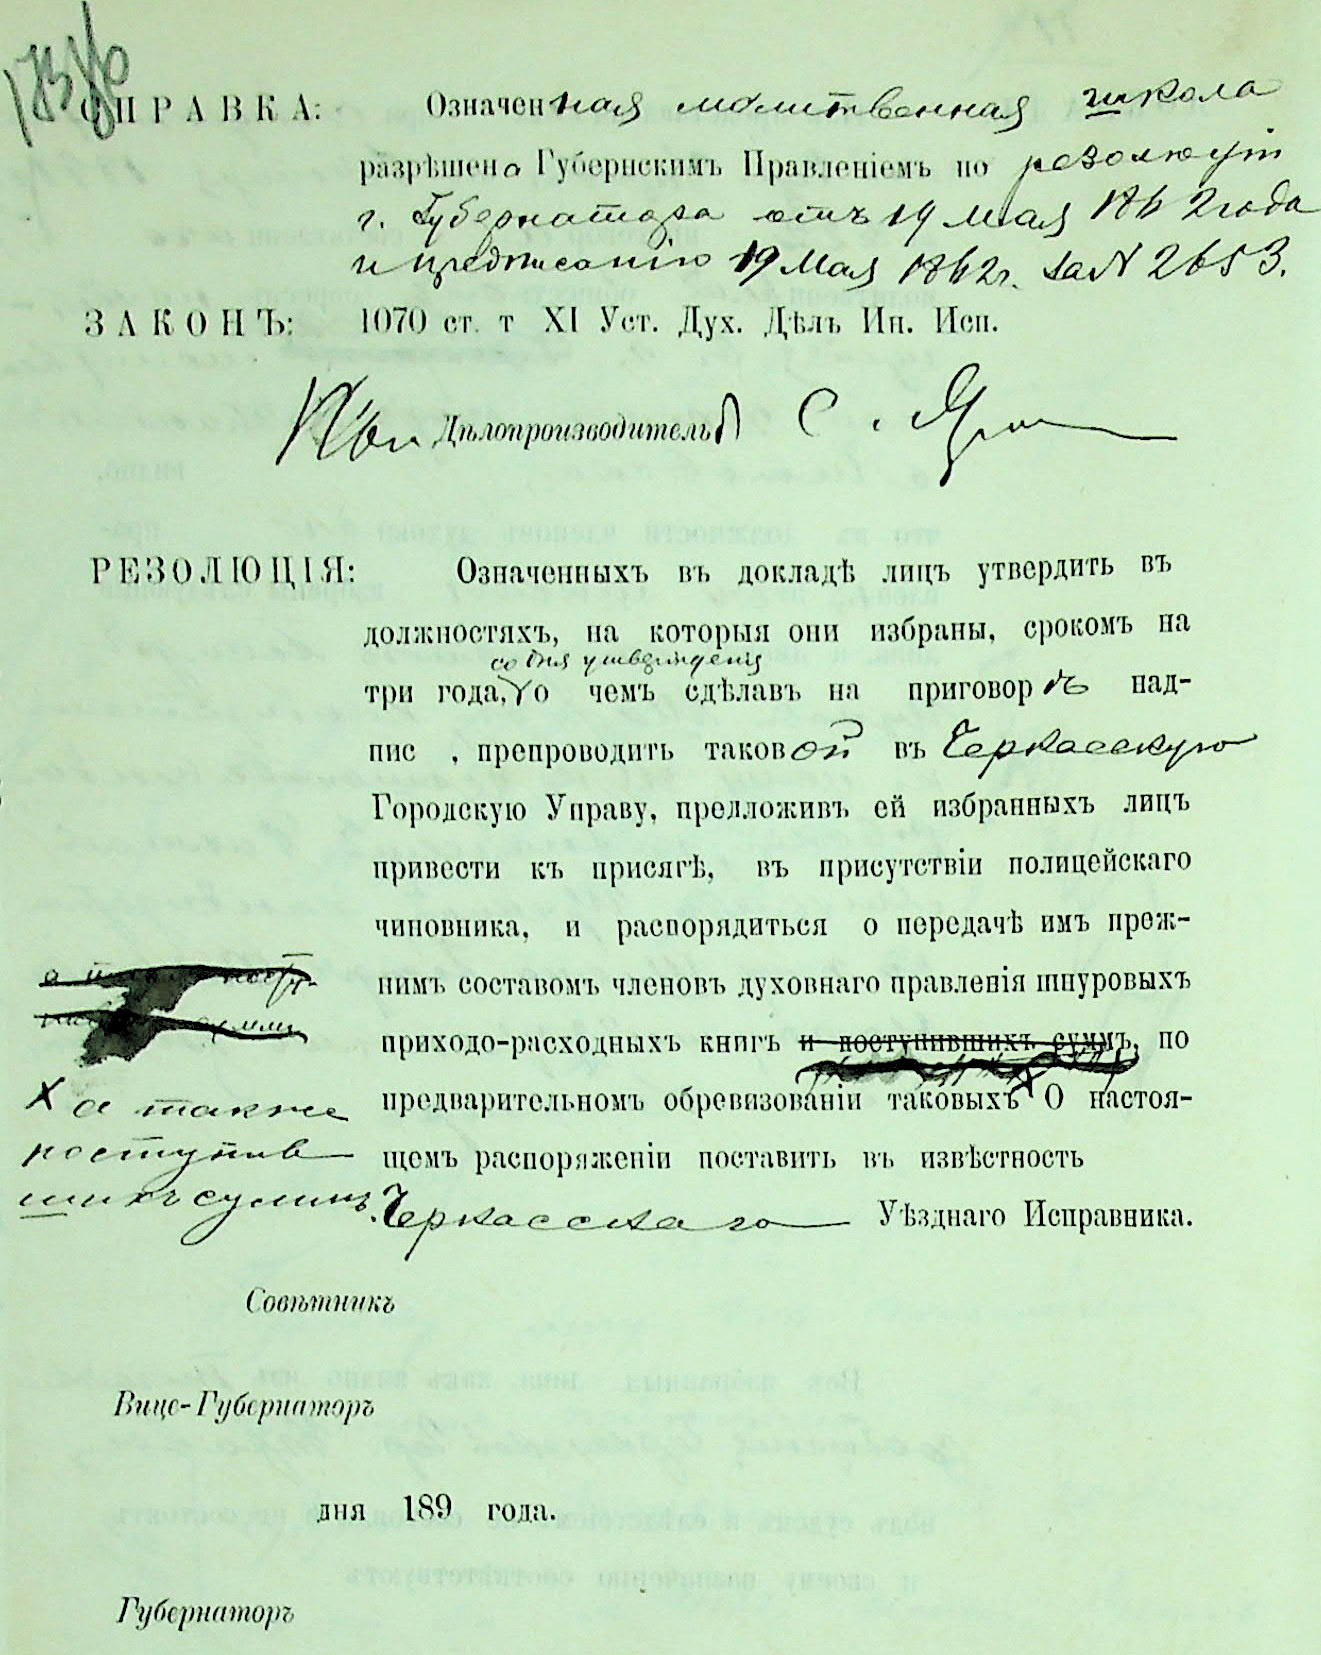 СПРАВКА: Означенная молитвенная школа
разрѣшена Губернскимъ Правленіемъ по резолюціи
г. Губернатора отъ 19 мая 1862 года
и предписанію 19 Мая 1862 г. за № 2653.
ЗАКОНЪ: 1070 ст. т XI Уст. Дух. Дѣлъ Ин. Исп.
Дѣлопроизводитель
РЕЗОЛЮЦІЯ: Означенныхъ въ докладѣ лицъ утвердить въ
должностяхъ, на которыя они избраны, срокомъ на
со дня утвержденія
три года, о чемъ сдѣлавъ на приговорѣ над-
пис , препроводить таковой въ Черкасскую
Городскую Управу, предложивъ ей избранныхъ лицъ
привести къ присягѣ, въ присутствіи полицейскаго
чиновника, и распорядиться о передачѣ имъ преж-
нимъ составомъ членовъ духовнаго правленія шнуровыхъ
приходо-расходныхъ книгъ и поступившихъ суммъ, по
предварительномъ обревизованіи таковыхъ X О настоя-
щемъ распоряженіи поставить въ извѣстность
Черкасскаго Уѣзднаго Исправника.
X а также
поступив
шихъ суммъ.
Совѣтникъ
Вице-Губернаторъ
дня 189 года.
Губернаторъ